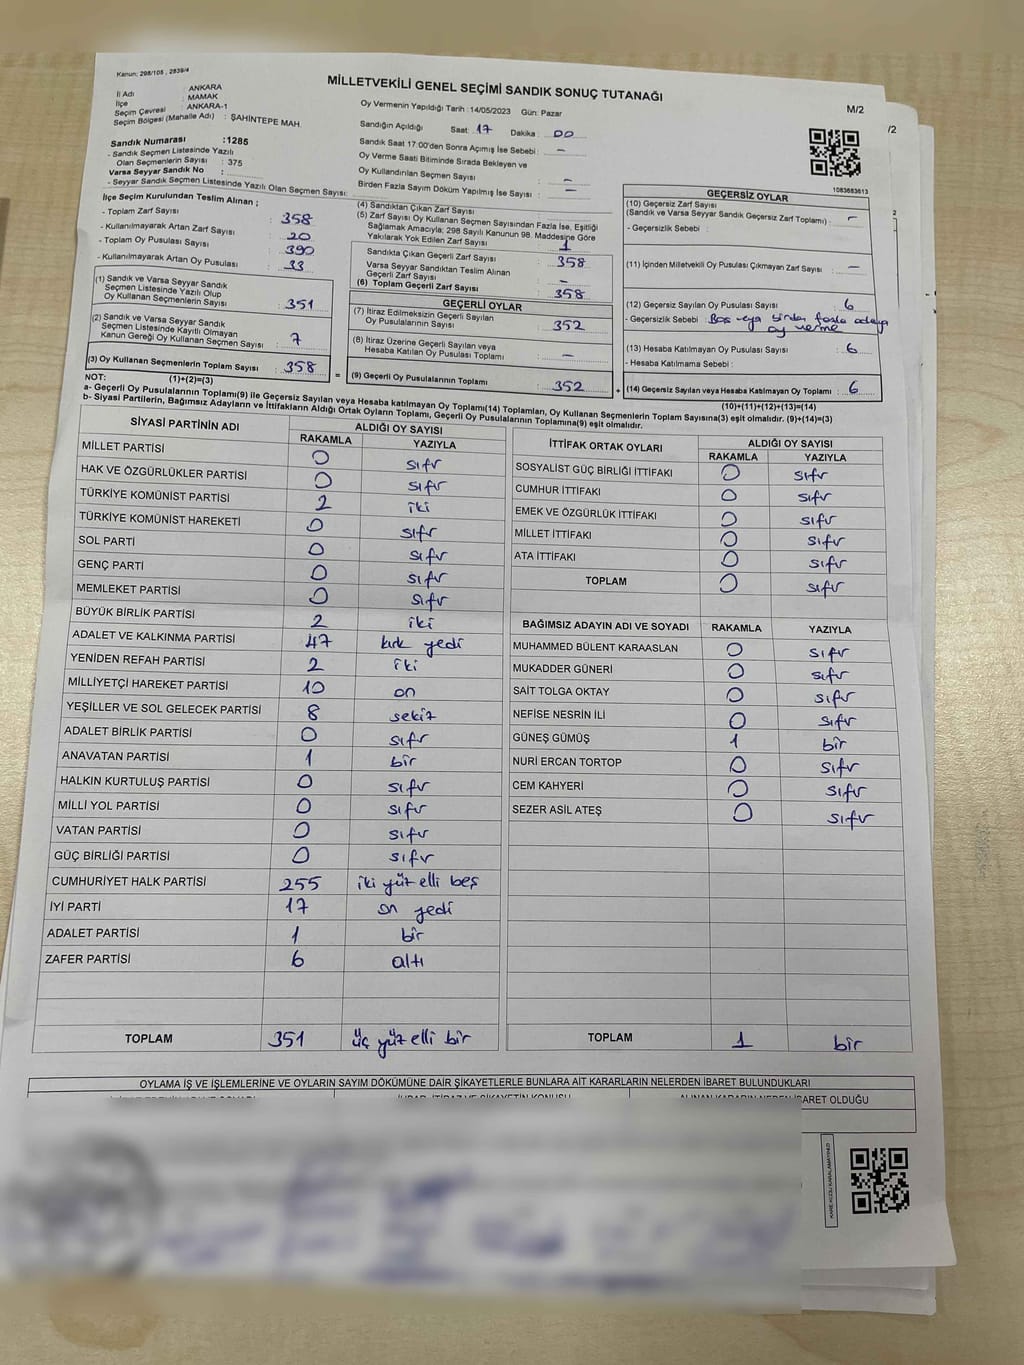 Kanun; 298/105 , 2839/4
MİLLETVEKİLİ GENEL SEÇİMİ SANDIK SONUÇ TUTANAĞI
M/2
/2
İl Adı : ANKARA
İlçe : MAMAK
Seçim Çevresi : ANKARA-1
Seçim Bölgesi (Mahalle Adı) : ŞAHİNTEPE MAH.
Oy Vermenin Yapıldığı Tarih :14/05/2023 Gün: Pazar
Sandığın Açıldığı Saat: 17 Dakika : 00
Sandık Saat 17:00'den Sonra Açımış İse Sebebi : -
Oy Verme Saati Bitiminde Sırada Bekleyen ve
Oy Kullandırılan Seçmen Sayısı : -
Birden Fazla Sayım Döküm Yapılmış İse Sayısı : -
1083683613
Sandık Numarası :1285
- Sandık Seçmen Listesinde Yazılı
Olan Seçmenlerin Sayısı : 375
Varsa Seyyar Sandık No :
- Seyyar Sandık Seçmen Listesinde Yazılı Olan Seçmen Sayısı:
İlçe Seçim Kurulundan Teslim Alınan ;
- Toplam Zarf Sayısı : 358
- Kullanılmayarak Artan Zarf Sayısı : 20
- Toplam Oy Pusulası Sayısı : 390
- Kullanılmayarak Artan Oy Pusulası : 33
(1) Sandık ve Varsa Seyyar Sandık
Seçmen Listesinde Yazılı Olup
Oy Kullanan Seçmenlerin Sayısı : 351
(2) Sandık ve Varsa Seyyar Sandık
Seçmen Listesinde Kayıtlı Olmayan
Kanun Gereği Oy Kullanan Seçmen Sayısı : 7
(3) Oy Kullanan Seçmenlerin Toplam Sayısı : 358
(4) Sandıktan Çıkan Zarf Sayısı :
(5) Zarf Sayısı Oy Kullanan Seçmen Sayısından Fazla İse, Eşitliği
Sağlamak Amacıyla; 298 Sayılı Kanunun 98. Maddesine Göre
Yakılarak Yok Edilen Zarf Sayısı : 1
Sandıkta Çıkan Geçerli Zarf Sayısı : 358
Varsa Seyyar Sandıktan Teslim Alınan
Geçerli Zarf Sayısı : -
(6) Toplam Geçerli Zarf Sayısı : 358
GEÇERLİ OYLAR
(7) İtiraz Edilmeksizin Geçerli Sayılan
Oy Pusulalarının Sayısı : 352
(8) İtiraz Üzerine Geçerli Sayılan veya
Hesaba Katılan Oy Pusulası Toplamı : -
= (9) Geçerli Oy Pusulalarının Toplamı : 352
GEÇERSİZ OYLAR
(10) Geçersiz Zarf Sayısı
(Sandık ve Varsa Seyyar Sandık Geçersiz Zarf Toplamı) : -
- Geçersizlik Sebebi :
(11) İçinden Milletvekili Oy Pusulası Çıkmayan Zarf Sayısı : -
(12) Geçersiz Sayılan Oy Pusulası Sayısı : 6
- Geçersizlik Sebebi : Boş veya birden fazla adaya
oy verme
(13) Hesaba Katılmayan Oy Pusulası Sayısı : 6
- Hesaba Katılmama Sebebi :
+ (14) Geçersiz Sayılan veya Hesaba Katılmayan Oy Toplamı : 6
NOT: (1)+(2)=(3)
(10)+(11)+(12)+(13)=(14)
a- Geçerli Oy Pusulalarının Toplamı(9) ile Geçersiz Sayılan veya Hesaba katılmayan Oy Toplamı(14) Toplamları, Oy Kullanan Seçmenlerin Toplam Sayısına(3) eşit olmalıdır. (9)+(14)=(3)
b- Siyasi Partilerin, Bağımsız Adayların ve İttifakların Aldığı Ortak Oyların Toplamı, Geçerli Oy Pusulalarının Toplamına(9) eşit olmalıdır.
SİYASİ PARTİNİN ADI ALDIĞI OY SAYISI
RAKAMLA YAZIYLA
MİLLET PARTİSİ 0 sıfır
HAK VE ÖZGÜRLÜKLER PARTİSİ 0 sıfır
TÜRKİYE KOMÜNİST PARTİSİ 2 iki
TÜRKİYE KOMÜNİST HAREKETİ 0 sıfır
SOL PARTİ 0 sıfır
GENÇ PARTİ 0 sıfır
MEMLEKET PARTİSİ 0 sıfır
BÜYÜK BİRLİK PARTİSİ 2 iki
ADALET VE KALKINMA PARTİSİ 47 kırk yedi
YENİDEN REFAH PARTİSİ 2 iki
MİLLİYETÇİ HAREKET PARTİSİ 10 on
YEŞİLLER VE SOL GELECEK PARTİSİ 8 sekiz
ADALET BİRLİK PARTİSİ 0 sıfır
ANAVATAN PARTİSİ 1 bir
HALKIN KURTULUŞ PARTİSİ 0 sıfır
MİLLİ YOL PARTİSİ 0 sıfır
VATAN PARTİSİ 0 sıfır
GÜÇ BİRLİĞİ PARTİSİ 0 sıfır
CUMHURİYET HALK PARTİSİ 255 iki yüz elli beş
İYİ PARTİ 17 on yedi
ADALET PARTİSİ 1 bir
ZAFER PARTİSİ 6 altı
TOPLAM 351 üç yüz elli bir
İTTİFAK ORTAK OYLARI ALDIĞI OY SAYISI
RAKAMLA YAZIYLA
SOSYALİST GÜÇ BİRLİĞİ İTTİFAKI 0 sıfır
CUMHUR İTTİFAKI 0 sıfır
EMEK VE ÖZGÜRLÜK İTTİFAKI 0 sıfır
MİLLET İTTİFAKI 0 sıfır
ATA İTTİFAKI 0 sıfır
TOPLAM 0 sıfır
BAĞIMSIZ ADAYIN ADI VE SOYADI RAKAMLA YAZIYLA
MUHAMMED BÜLENT KARAASLAN 0 sıfır
MUKADDER GÜNERİ 0 sıfır
SAİT TOLGA OKTAY 0 sıfır
NEFİSE NESRİN İLİ 0 sıfır
GÜNEŞ GÜMÜŞ 1 bir
NURİ ERCAN TORTOP 0 sıfır
CEM KAHYERİ 0 sıfır
SEZER ASİL ATEŞ 0 sıfır
TOPLAM 1 bir
OYLAMA İŞ VE İŞLEMLERİNE VE OYLARIN SAYIM DÖKÜMÜNE DAİR ŞİKAYETLERLE BUNLARA AİT KARARLARIN NELERDEN İBARET BULUNDUKLARI
İHBAR, İTİRAZ VE ŞİKAYETİN KONUSU ALINAN KARARIN NEDEN İBARET OLDUĞU
KARE KODU KARALAMAYINIZ!